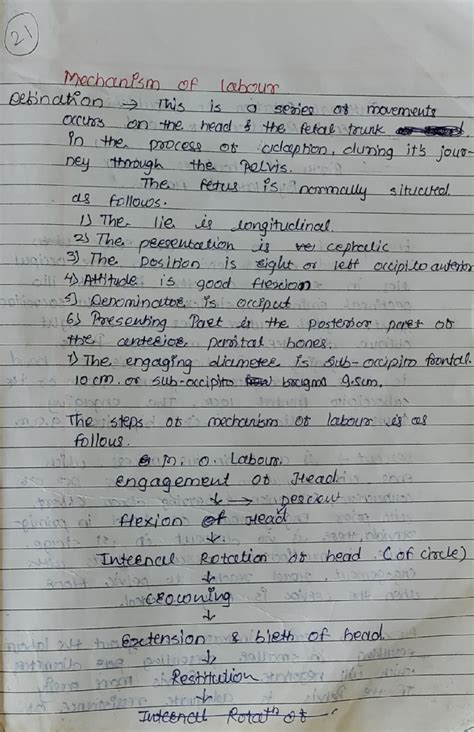 21
Mechanism of labour
Defination → This is a series of movements
occurs on the head & the fetal trunk
in the process of adaption, during it's jour-
ney through the Pelvis.
The fetus is normally situated
as follows.
1) The lie is longitudinal.
2) The presentation is cephalic
3) The position is right or left occipito anterior
4) Attitude is good flexion
5) Denominator is occiput
6) Presenting Part is the posterior part of
the anterior parital bones.
7) The engaging diameter is sub-occipito frontal.
10 cm. or sub-occipito bregma 9.5cm.
The steps of mechanism of labour is as
follous.
M. O. Labour.
engagement of Head
↓ → Descent
flexion of Head
↓
Internal Rotation of head (of circle)
↓
Crowning
↓
Extension & birth of head
↓
Restitution
↓
Internal Rotatn of